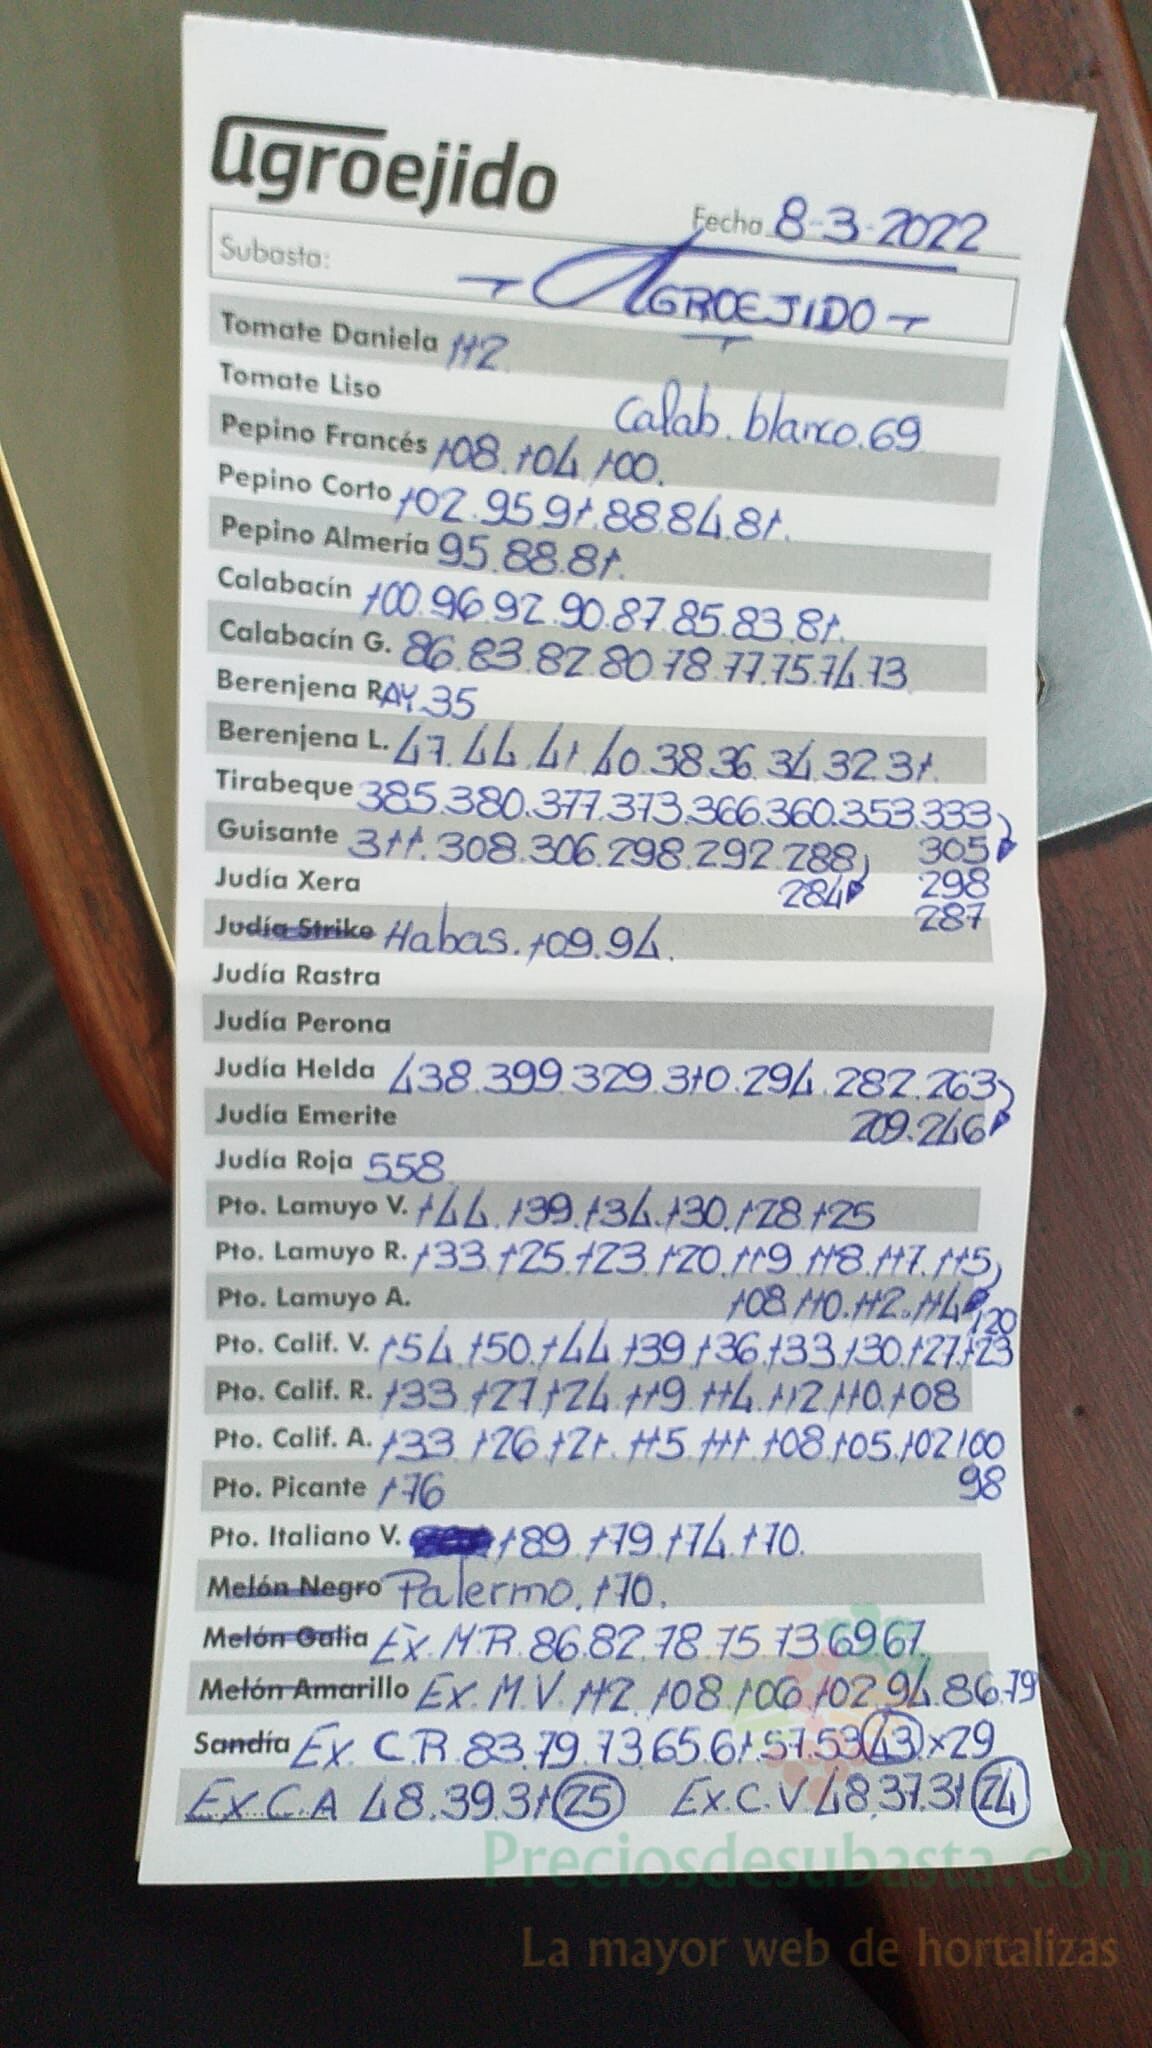 agroejido
Fecha 8-3-2022
Subasta: AGROEJIDO
Tomate Daniela 112
Tomate Liso
Calab. blanco. 69
Pepino Francés 108.104.100.
Pepino Corto 102.95.91.88.84.81.
Pepino Almería 95.88.81.
Calabacín 100.96.92.90.87.85.83.81.
Calabacín G. 86.83.82.80.78.77.75.74.73
Berenjena RAY.35
Berenjena L. 47.44.41.40.38.36.34.32.31.
Tirabeque 385.380.377.373.366.360.353.333
Guisante 311.308.306.298.292.288 305
Judía Xera 284 298
287
Judía Strike Habas. 109.94.
Judía Rastra
Judía Perona
Judía Helda 438.399.329.310.294.282.263
Judía Emerite 209.246
Judía Roja 558
Pto. Lamuyo V. 144.139.134.130.128.125
Pto. Lamuyo R. 133.125.123.120.119.118.117.115
Pto. Lamuyo A. 108.110.112.114
120
Pto. Calif. V. 154.150.144.139.136.133.130.127.123
Pto. Calif. R. 133.127.124.119.114.112.110.108
Pto. Calif. A. 133.126.121.115.111.108.105.102.100
Pto. Picante 176 98
Pto. Italiano V. 189.179.174.170.
Melón Negro Palermo. 170.
Melón Galia Ex. M.R. 86.82.78.75.73.69.67.
Melón Amarillo Ex. M.V. 112.108.106.102.94.86.79
Sandía Ex. C.R. 83.79.73.65.61.57.53 43 x29
Ex. C.A 48.39.31 25 Ex. C.V 48.37.31 24
Preciosdesubasta.com
La mayor web de hortalizas